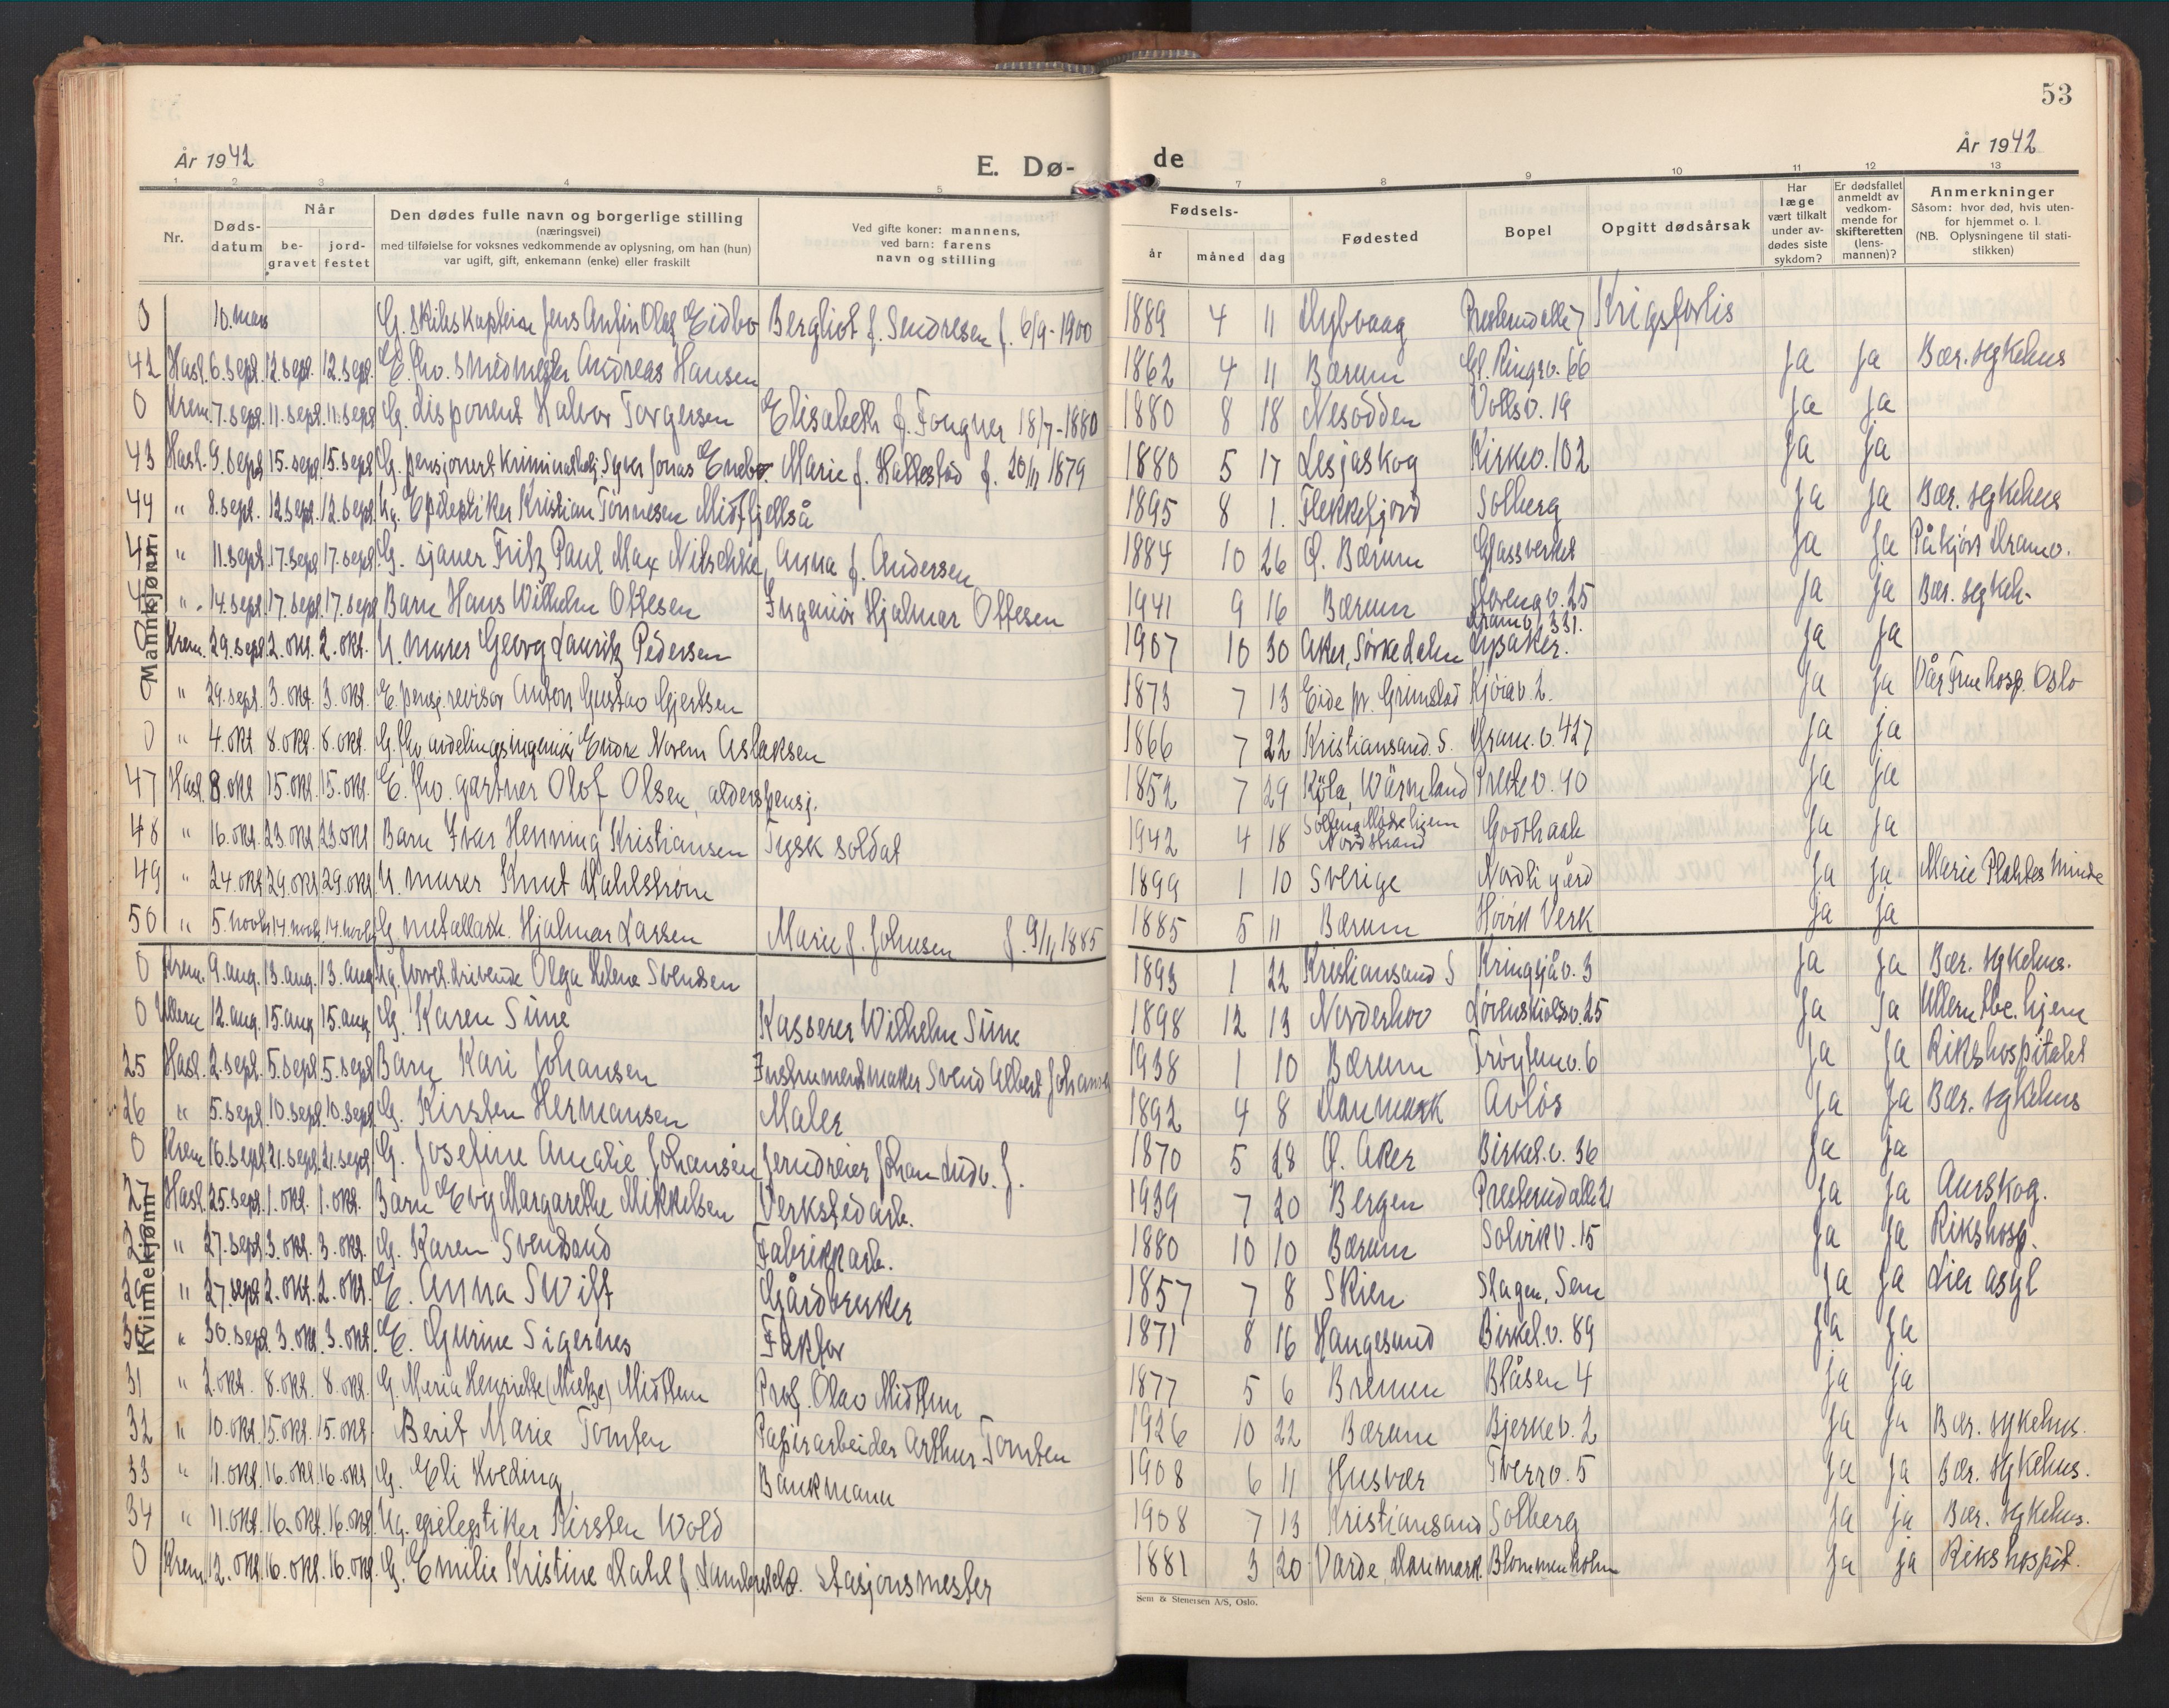 53
År 1942
E. Dø-
de
År 1942
1 2 3 4 5 6 7 8 9 10 11 12 13
Nr.
Døds-
datum
Når
be-
gravet
jord-
festet
Den dødes fulle navn og borgerlige stilling
(næringsvei)
med tilføielse for voksnes vedkommende av oplysning, om han (hun)
var ugift, gift, enkemann (enke) eller fraskilt
Ved gifte koner: mannens,
ved barn: farens
navn og stilling
Fødsels-
år måned dag
Fødested
Bopel
Opgitt dødsårsak
Har
læge
vært tilkalt
under av-
dødes siste
sykdom?
Er dødsfallet
anmeldt av
vedkom-
mende for
skifteretten
(lens-
mannen)?
Anmerkninger
Såsom: hvor død, hvis uten-
for hjemmet o. l.
(NB. Oplysningene til stati-
stikken)
Mannkjønn
0 10. mars G. skibskaptein Jens Anfin Olaf Eidbo Bergliot f. Sendresen f. 6/9-1900 1889 4 11 Dybvaag Presterudalle 7 Krigsforlis
42 Hasl. 6. sept. 12 sept. 12. sept. E. fhv. smedmester Andreas Hansen 1862 4 11 Bærum Gl. Ringsv. 66 Ja Ja Bær. sykehus
0 Krem. 7. sept. 11. sept. 11. sept G. Disponent Halvor Torgersen Elisabeth f. Fougner 18/7-1880 1880 8 18 Nesodden Vollsv. 19 Ja Ja
43 Hasl. 9. sept. 15. sept. 15. sept G. pensjonert kriminalbetj. Syver Jonas Enebo Marie f. Hallestad f. 20/11 1879 1880 5 17 Lesjaskog Kirkev. 102 Ja Ja
44 " 8. sept. 12 sept. 12. sept. Ug. Epileptiker Kristian Tønnesen Midtfjellså 1895 8 1. Flekkefjord Solberg Ja Ja Bær. sykehus
45 " 11. sept. 17. sept 17. sept. G. sjauer Fritz Paul Max Nitschke, Anna f. Andersen 1884 10 26 Ø. Bærum Glassverket Ja Ja Påkjørt Dramv.
46 " 14. sept 17. sept. 17. sept Barn Hans Wilhelm Ottesen Ingeniør Hjalmar Ottesen 1941 9 16 Bærum 25 Ja Ja Bær. sykeh.
0 Krem. 29. sept 2. okt. 2. okt. U. murer Georg Lauritz Pedersen 1907 10 30 Aker, Sørkedalen Dramv. 331. Lysaker. Ja Ja
0 " 29. sept. 3. okt. 3. okt. E. pensj. revisor Anton Gustav Gjertsen 1873 7 13 Eide pr. Grimstad Kjøiav. 2. Ja Ja Vår Frue hosp. Oslo
0 " 4. okt 8. okt. 8. okt. G. fhv avdelingsingeniør Endre Norem Aslaksen 1866 7 22 Kristiansand. S. Dram. v. 427 Ja Ja
47 Hasl. 8. okt 15. okt. 15. okt. E. fhv. gartner Olof Olsen, alderspensj. 1852 7 29 Köla, Wärmland Prestev. 40 Ja Ja
48 " 16. okt. 23. okt. 23. okt Barn Ivar Henning Kristiansen Tysk soldat 1942 4 18 Solberg Mødrehjem Nordstrand Godthaab Ja Ja
49 " 24. okt 29. okt 29. okt U. murer Knut Dahlstrøm 1899 1 10 Sverige Nordli gård Ja Ja Marie Plahtes Minde
50 " 5. novbr 14. novbr. 14. novbr G. metallarb. Hjalmar Larsen Marie f. Johnsen f. 9/11 1885 1885 5 11 Bærum Høvik Verk Ja Ja
Kvinnekjønn
0 Krem. 9. aug. 13. aug. 13. aug Ug. Olga Helene Svendsen 1893 1 22 Kristiansand S Kringsjåv. 3 Ja Ja Bær. sykehus.
0 Ullern 12. aug. 15. aug 15. aug. G. Karen Sime Kasserer Wilhelm Sime 1898 12 13 Norderhov Løvenskioldsv. 25 Ja Ja Ullern tbc. hjem
25 Hasl. 2. sept. 5. sept 5. sept Barn Kari Johansen Instrumentmaker Svend Albert Johansen 1938 1 10 Bærum 6 Ja Ja Rikshospitalet
26 " 5. sept. 10. sept. 10. sept G. Kirsten Hermansen Maler 1892 4 8 Danmark Avløs Ja Ja Bær. sykehus
0 Krem 16. sept 21. sept. 21. sept G. Josefine Amalie Johansen Jerndreier Johan Ludv. J. 1870 5 28 Ø. Aker Birkel. v. 36 Ja Ja
27 Hasl. 25. sept 1. okt. 1. okt. Barn Evy Margarethe Mikkelsen Verkstedarb. 1939 7 20 Bergen Presterudalle 21 Ja Ja Aurskog.
28 " 27. sept. 3. okt. 3. okt. G. Karen Svendsand Fabrikkarb. 1880 10 10 Bærum Solvikv. 15 Ja Ja Rikshosp.
29 " 27. sept 2. okt. 2. okt. E. Anna Swift Gårdbruker 1857 7 8 Skien Slagen, Sem Ja Ja Lier asyl
30 " 30. sept 3. okt. 3. okt. E. Gurine Sigernes Faktor 1871 8 16 Haugesund Birkel. v. 89 Ja Ja
31 " 2. okt. 8. okt. 8. okt. G. Maria Henriette (Mietze) Midttun Prof. Olav Midttun 1877 5 6 Bremen Blåsen 4 Ja Ja
32 " 10. okt. 15. okt. 15. okt. Berit Marie Tomten Papirarbeider Arthur Tomten 1926 10 22 Bærum Bjerkev. 2 Ja Ja Bær. sykehus.
33 " 11. okt. 16. okt. 16. okt G. Eli Kveding Bankmann 1908 6 11 Husvær Tverrv. 5 Ja Ja Bær. sykehus.
34 " 11. okt. 16. okt. 16. okt. Ug. epileptiker Kirsten Wold 1908 7 13 Kristiansand Solberg Ja Ja Bær. sykehus.
0 Krem. 12. okt. 16. okt. 16. okt. G. Emilie Kristine Dahl f. Stasjonsmester 1881 3 20 Varde, Danmark. Blommenholm Ja Ja Rikshospit.
Sem & Stenersen A/S, Oslo.